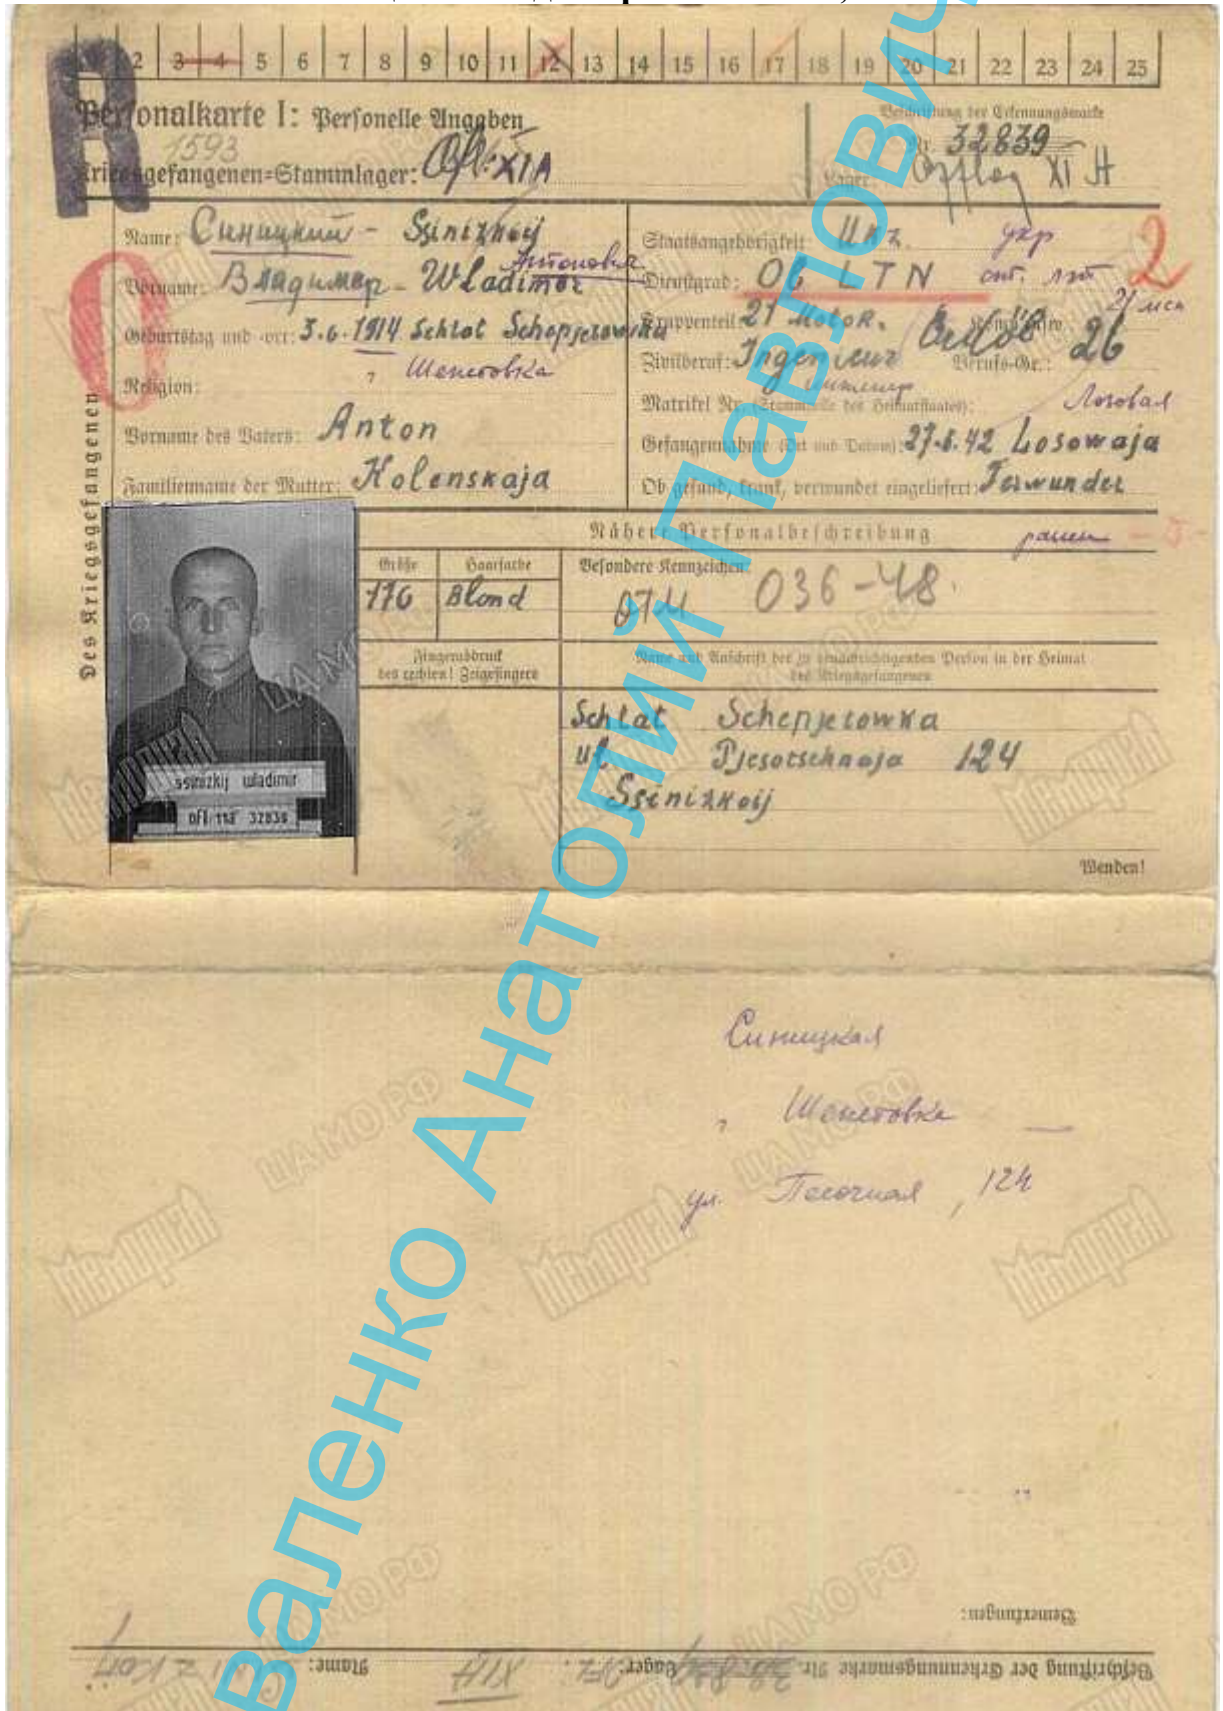 1 2 3 4 5 6 7 8 9 10 11 12 13 14 15 16 17 18 19 20 21 22 23 24 25
R
Personalkarte I: Personelle Angaben
1593
Kriegsgefangenen=Stammlager: Ofl. XIA
Beschriftung der Erkennungsmarke
Nr. 32839
Lager: Offlag XI A
Des Kriegsgefangenen
Name: Синицкий - Ssinizkoij
Антонович
Vorname: Владимир - Wladimir
Geburtstag und -ort: 3.6.1914 Schtat Schepjetowka
г Шепетовка
Religion:
Vorname des Vaters: Anton
Familienname der Mutter: Kolenskaja
Staatsangehörigkeit: Ukr. укр
2
Dienstgrad: Ob LTN ст. лт
Truppenteil: 21 Motor. 21 мсп
Zivilberuf: Ingenieur Berufs-Gr.: 26
инженер
Matrikel Nr. (Stammrolle des Heimatstaates):
Лозовая
Gefangennahme (Ort und Datum): 27.5.42 Losowaja
Ob gesund, krank, verwundet eingeliefert: Ferwundet
ранен
Nähere Personalbeschreibung
Größe Haarfarbe Besondere Kennzeichen:
176 Blond
036-48
Fingerabdruck
des rechten! Zeigefingers
Name und Anschrift der zu benachrichtigenden Person in der Heimat
des Kriegsgefangenen
Schtat Schepjetowka
ul Pjesotschnaja 124
Ssinizkoij
ssinizkij wladimir
ofl 11a 32839
Wenden!
Синицкая
г Шепетовка
ул. Песочная, 124
Bemerkungen:
Beschriftung der Erkennungsmarke Nr. Lager: XIA Name:
Валенко Анатолий Павлович
Мемориал
ЦАМО РФ